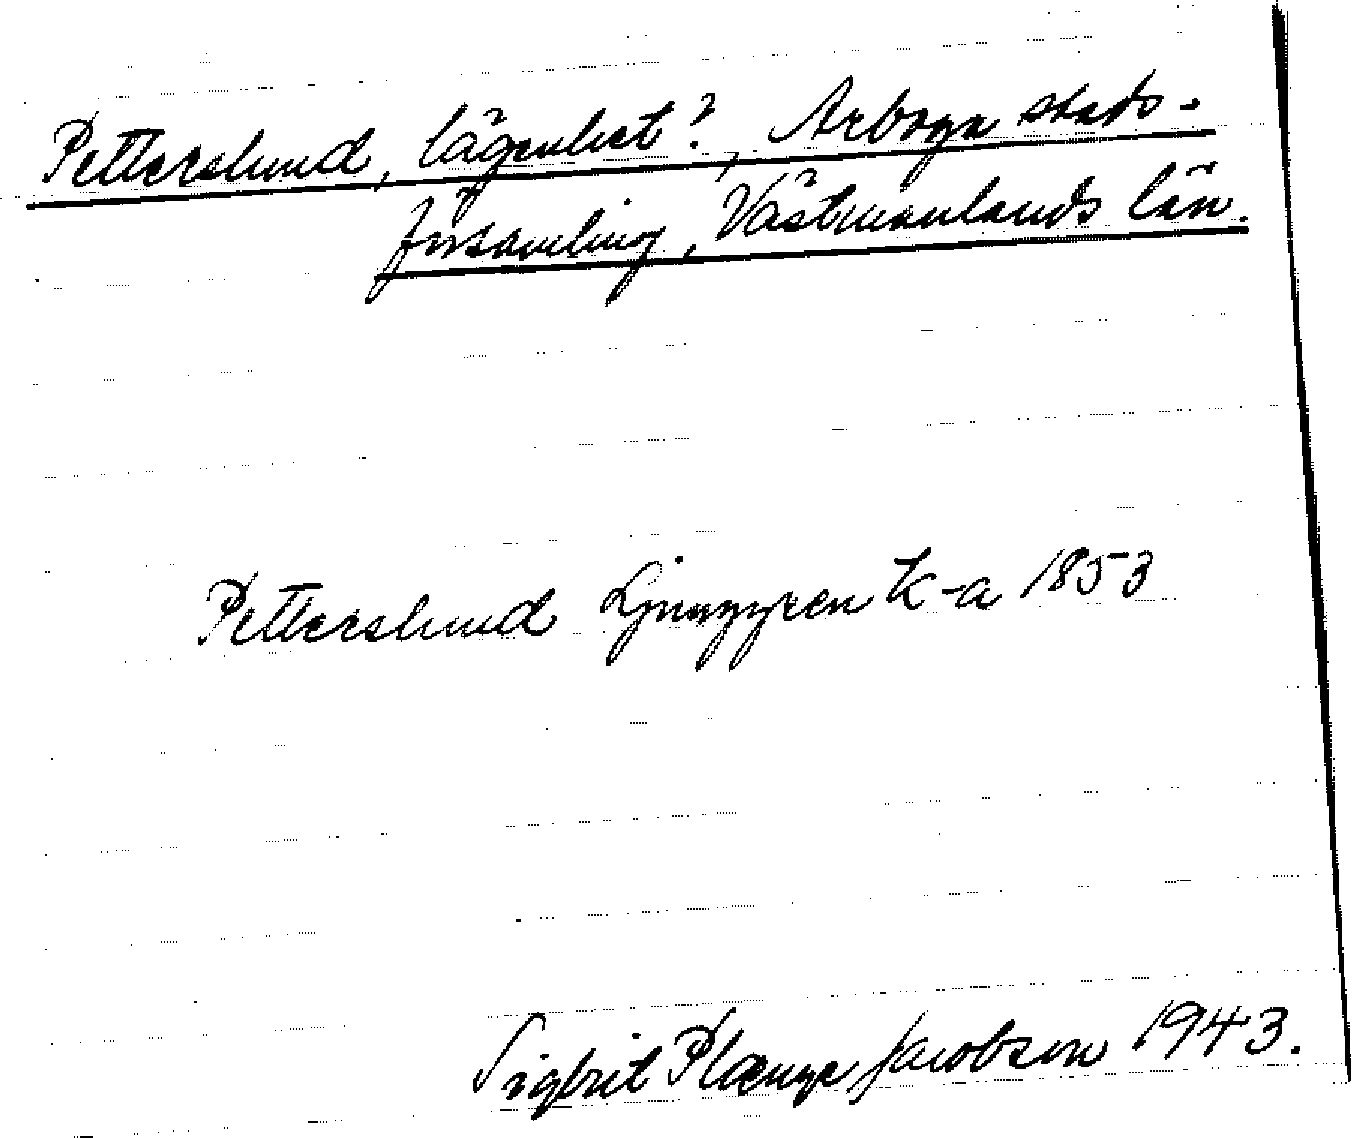 Petterslund, lägenhet?, Arboga stads-
församling, Västmanlands län.
Petterslund Ljunggren K-a 1853
Sigbrit Plænge Jacobson 1943.